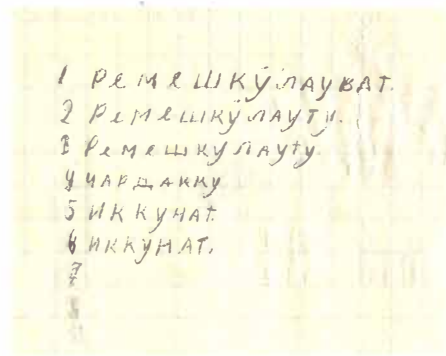 1 Ремешкӱлауват.
2 Ремешкӱлауту.
3 Ремешкулауту
4 чардакку
5 Иккунат.
6 иккунат.
7